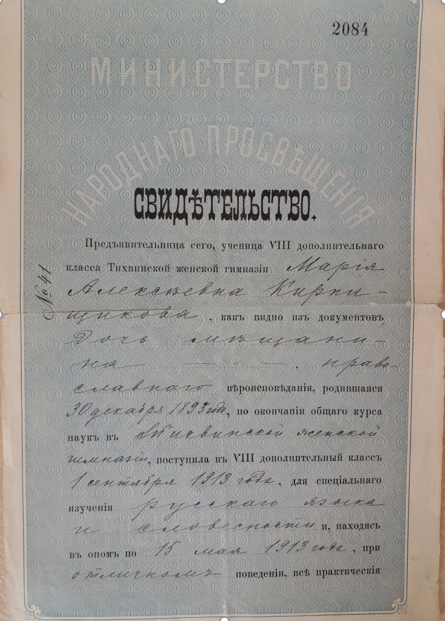 2084
МИНИСТЕРСТВО
НАРОДНАГО ПРОСВѢЩЕНІЯ
СВИДѢТЕЛЬСТВО.
Предъявительница сего, ученица VIII дополнительнаго
класса Тихвинской женской гимназіи Марія
Алексѣевна Кирпи-
щикова, какъ видно изъ документовъ
дочь мѣщани-
на, право-
славнаго вѣроисповѣданія, родившаяся
30 декабря 1893 года, по окончаніи общаго курса
наукъ въ Тихвинской женской
гимназіи, поступила въ VIII дополнительный классъ
1 сентября 1913 года, для спеціальнаго
изученія русскаго языка
и словесности и, находясь
въ ономъ по 15 мая 1913 года, при
отличномъ поведеніи, всѣ практическія
№ 41